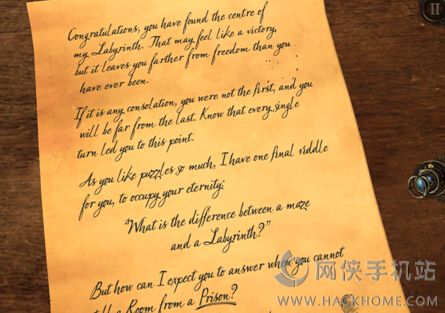 Congratulations, you have found the centre of
my Labyrinth. That may feel like a victory,
but it leaves you farther from freedom than you
have ever been.
If it is any consolation, you were not the first, and you
will be far from the last. Know that every single
turn led you to this point.
As you like puzzles so much, I have one final riddle
for you, to occupy your eternity:
"What is the difference between a maze
and a Labyrinth?"
But how can I expect you to answer when you cannot
a Room from a Prison?
II
网侠手机站
WWW.HACKHOME.COM